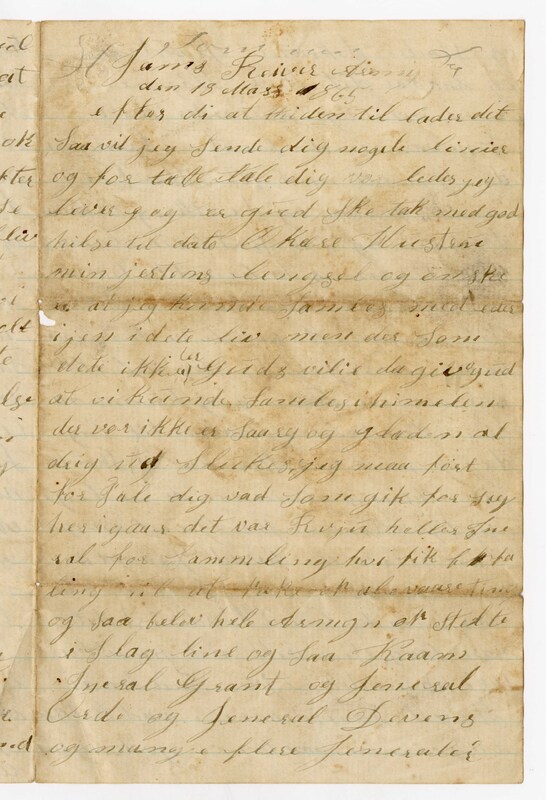 Jams Reiver Armi
den 18 Mars 1865
efter di at tiden til lader det
saa vil jeg sende dig nogele linier
og for tale dig vor ledes jeg
lever og er gud ske tak med god
helse til dato O kære Hustru
min jertens lengsel og ønske
er at jeg kunde samles med eder
ijen i dete liv men der som
dete ikke er Guds vilie da give gud
at vi kunde samles i himelen
der vor ikke er saarg og gladen al
drig ud slukes, jeg maa først
for tale dig vad som gik for sig
her igaar det var
ral for sammling
ling til at
og saa blev hele Armyn op stelte
i slag line og saa kaam
Jneral Grant og Jeneral
Orde og Jeneral Devens
og mange flere Jeneraler